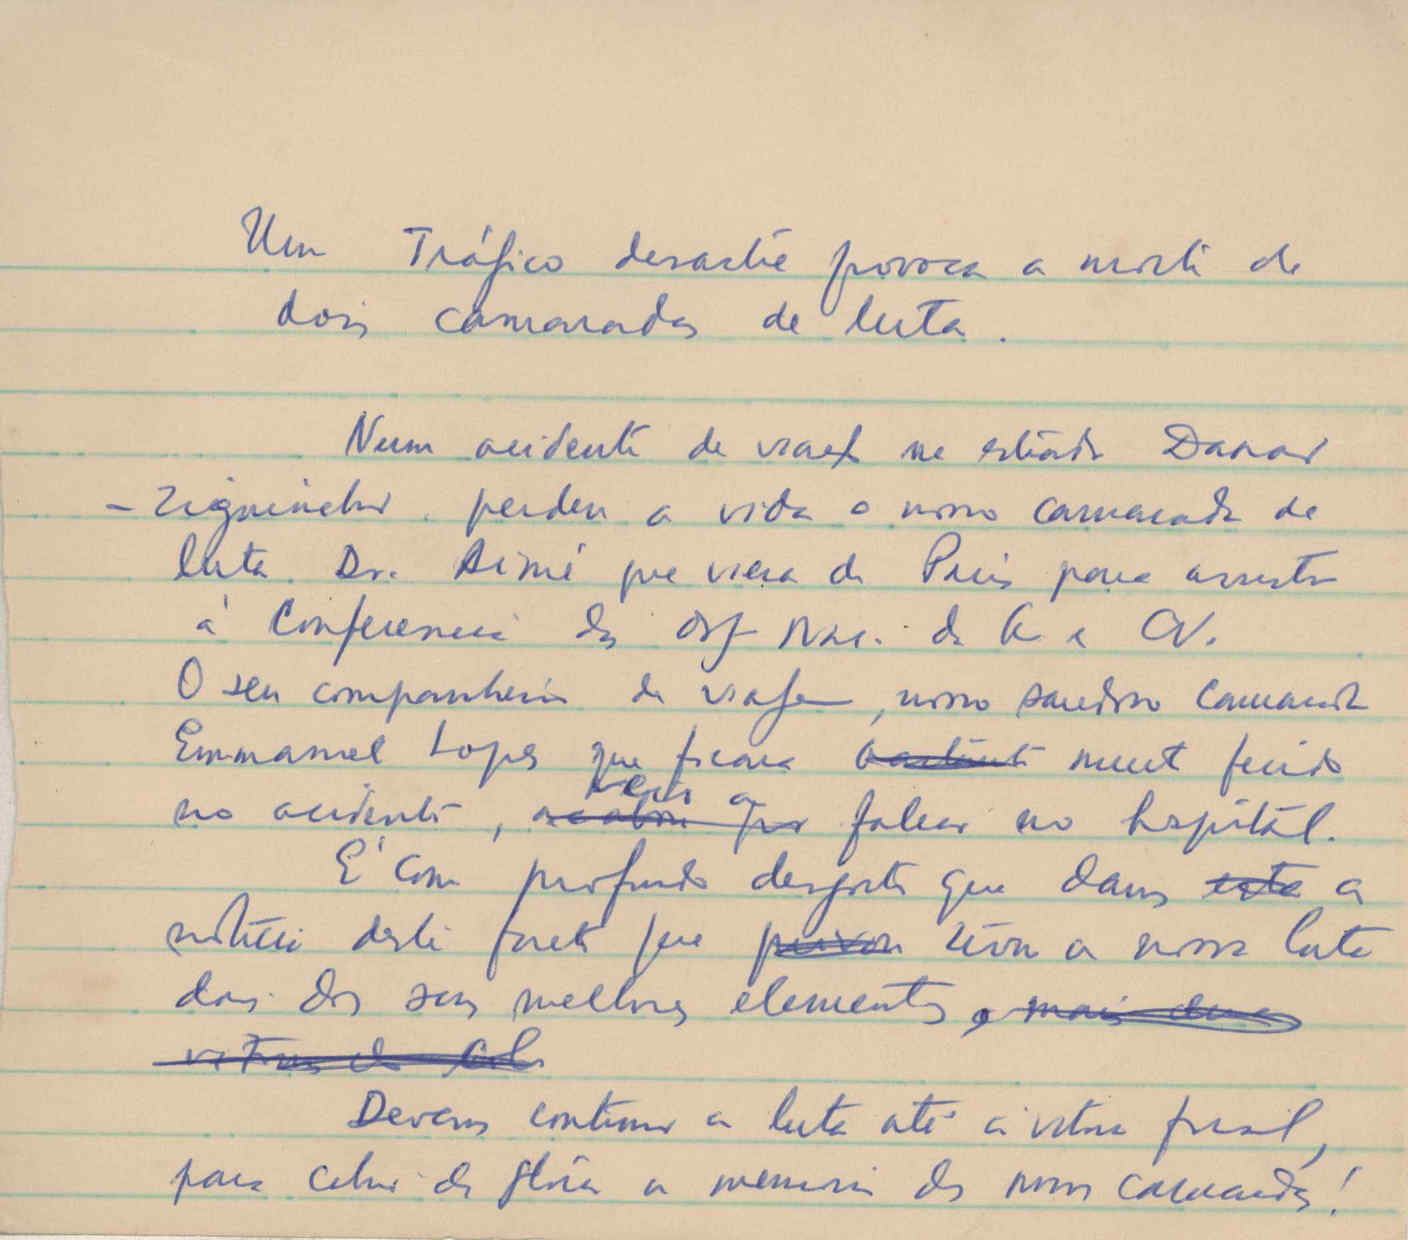 Um Trágico desastre provoca a morte de
dois camaradas de luta.
Num acidente de viação na estrada Dakar
- Ziguinchor perdeu a vida o nosso camarada de
luta Dr. Aimé que viera de Paris para assistir
à Conferencia das Org Nac. da G e CV.
O seu companheiro de viagem, nosso saudoso camarada
Emmanuel Lopes que ficara bastante muit ferido
no acidente, veio a falecer no hospital.
É com profundo desgosto que damos esta a
notícia deste facto que privou tirou a nossa luta
dois dos seus melhores elementos, mais duas
vitimas do
Devemos continuar a luta até à vitoria final,
para cobrir de glória a memoria dos nossos camaradas!